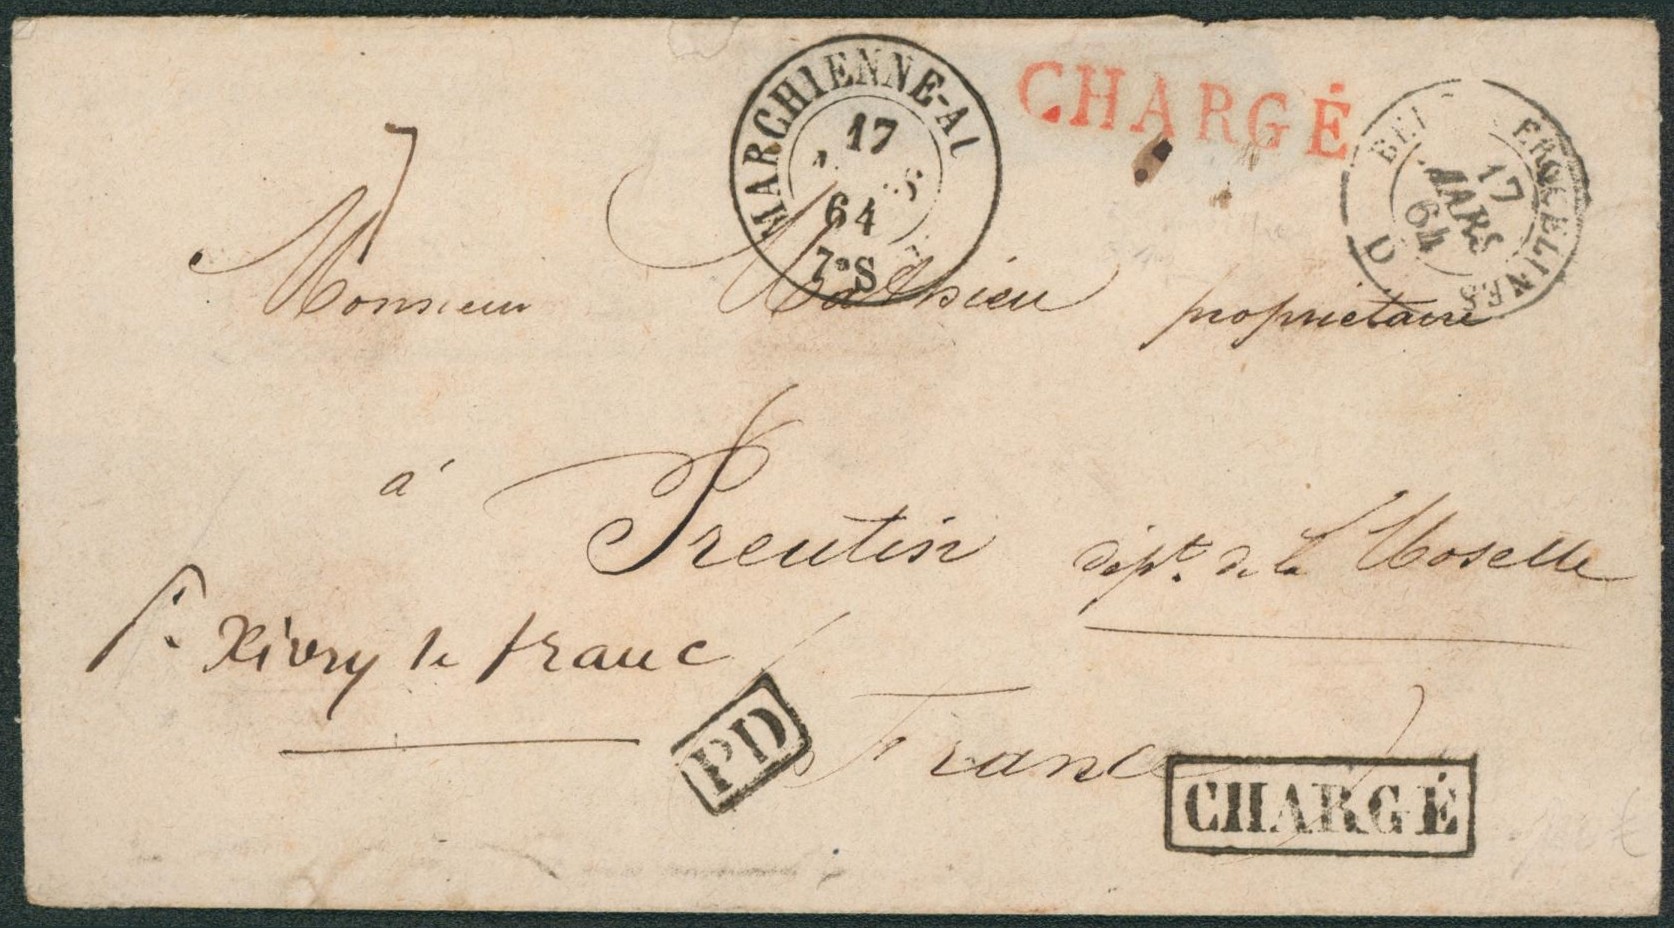 MARCHIENNE-AU
17
64
7ᵃS
CHARGÉ
ERQUELINES
17
MARS
64
7
Monsieur Mathieu propriétaire
à Preutin dépt. de la Moselle
pr. Xivry le franc
PD
France
CHARGÉ